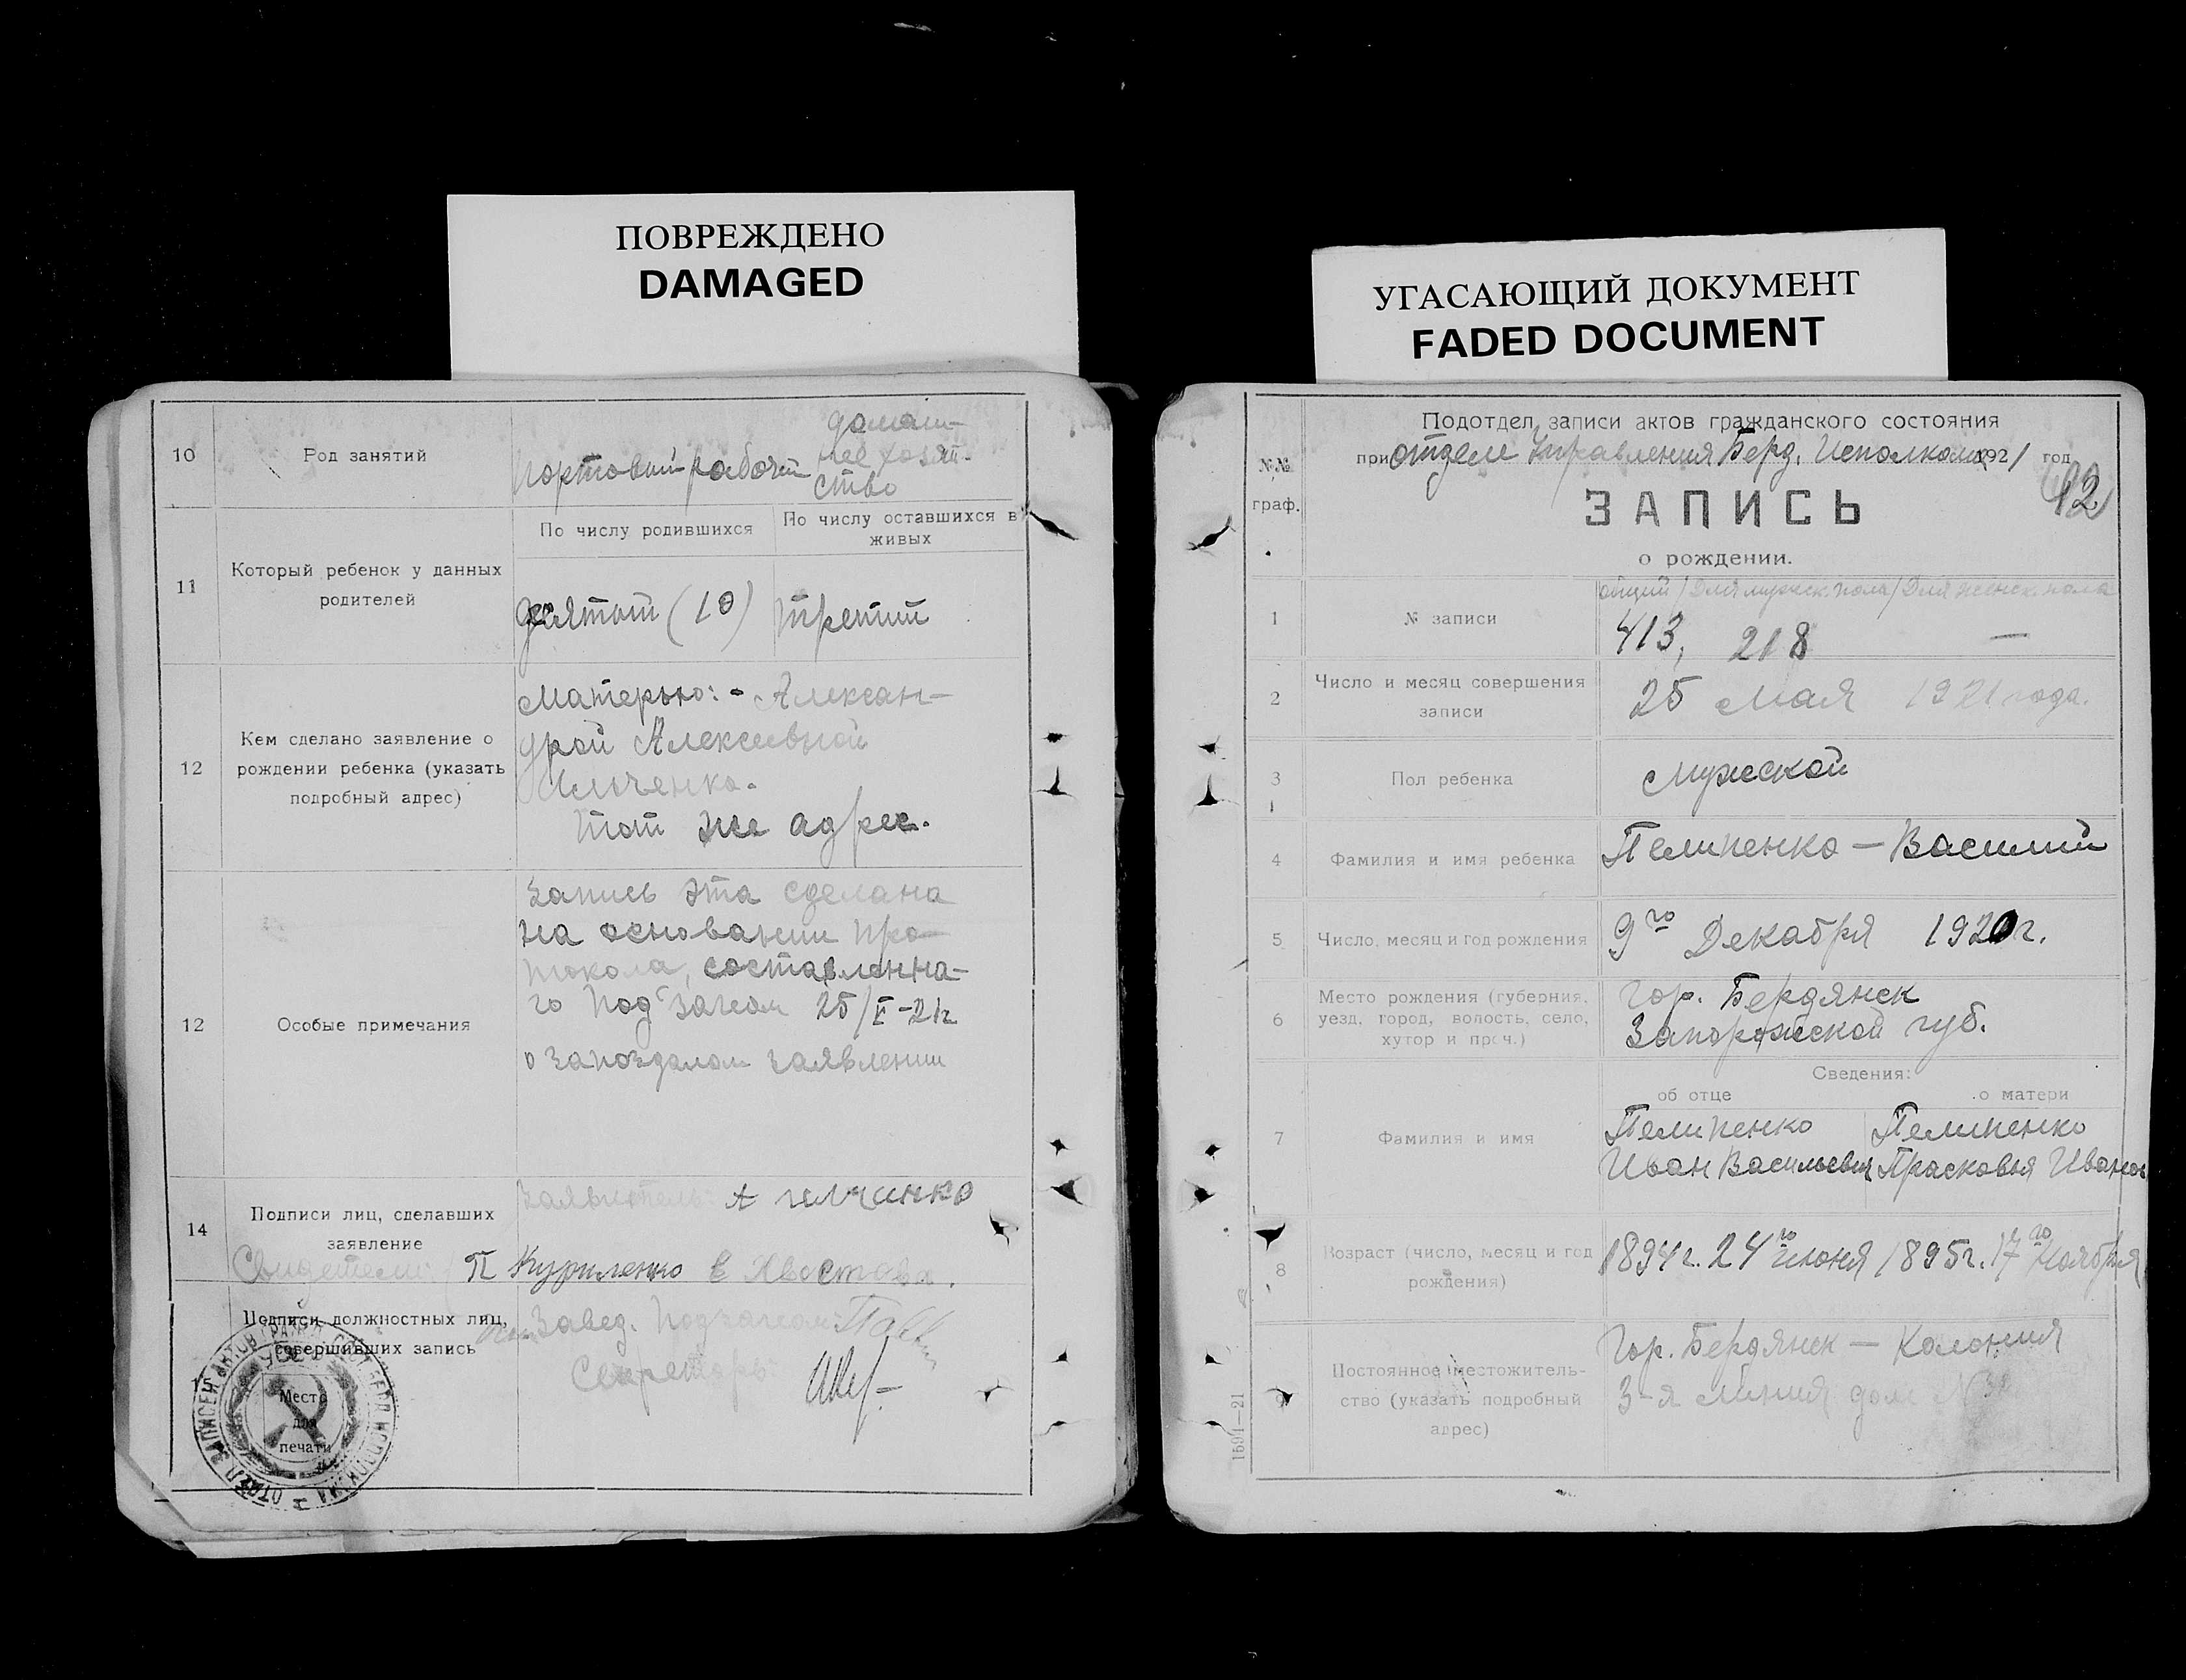 ПОВРЕЖДЕНО
DAMAGED
10
Род занятий
портовый рабочий
домаш-
нее хозяй-
ство
11
Который ребенок у данных
родителей
По числу родившихся
По числу оставшихся в
живых
десятый (10)
третий
12
Кем сделано заявление о
рождении ребенка (указать
подробный адрес)
Матерью: - Алексан-
дрой Алексеевной
Ильченко.
тот же адрес.
12
Особые примечания
Запись эта сделана
на основании про-
токола, составленна-
го Подзагсом 25/V-21г
о запоздалом заявлении
14
Подписи лиц, сделавших
заявление
Заявитель: А илченко
Свидетели: П Куриленко В Хвостова.
15
Подписи должностных лиц,
совершивших запись
Завед. Подзагсом
Секретарь
Место
для
печати
УГАСАЮЩИЙ ДОКУМЕНТ
FADED DOCUMENT
№№
граф.
Подотдел записи актов гражданского состояния
при отделе Управления Берд. Исполкома 1921 год
412
ЗАПИСЬ
о рождении.
1
№ записи
общий / Для мужск. пола / Для женск. пола
413, 218 —
2
Число и месяц совершения
записи
25 Мая 1921 года.
3
Пол ребенка
Мужской
4
Фамилия и имя ребенка
Пелипенко — Василий
5
Число, месяц и год рождения
9го Декабря 1920г.
6
Место рождения (губерния,
уезд, город, волость, село,
хутор и проч.)
Гор. Бердянск
Запорожской губ.
7
Фамилия и имя
Сведения:
об отце
о матери
Пелипенко
Иван Васильевич
Пелипенко
Прасковья Иванов
8
Возраст (число, месяц и год
рождения)
1894г. 24го июня
1895г. 17го Ноября
9
Постоянное местожитель-
ство (указать подробный
адрес)
Гор. Бердянск — Колония
3-я линия дом №
1591—21